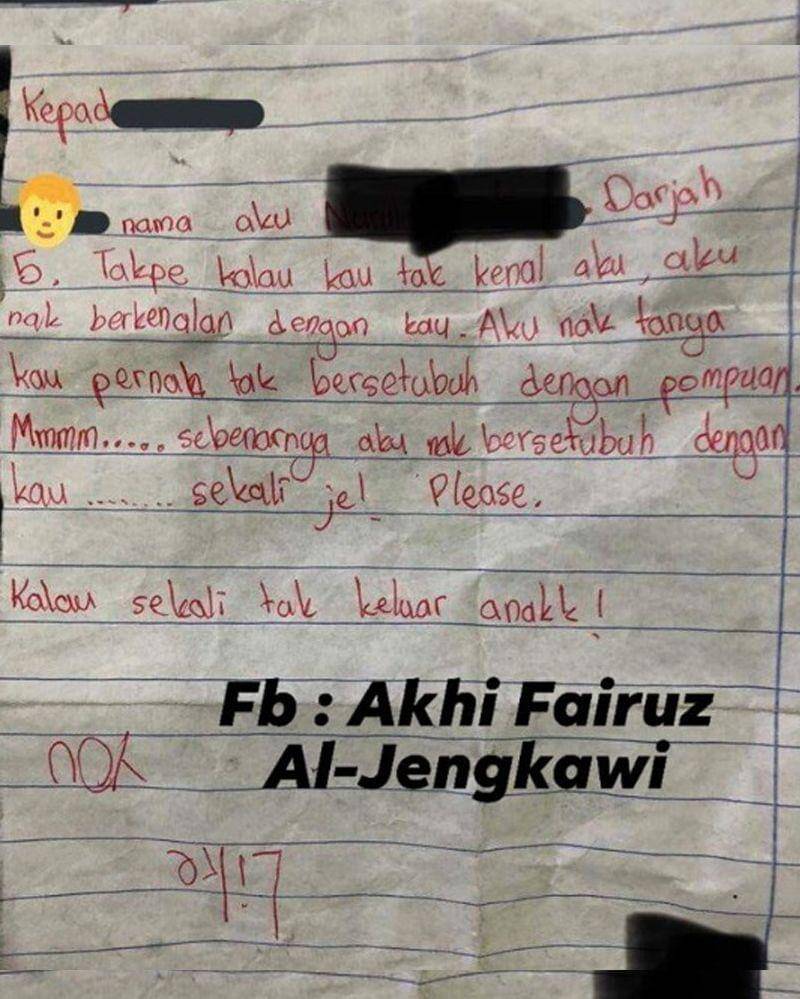 Kepad
nama aku Darjah
5. Takpe kalau kau tak kenal aku, aku
nak berkenalan dengan kau. Aku nak tanya
kau pernah tak bersetubuh dengan pompuan.
Mmmm..... sebenarnya aku nak bersetubuh dengan
kau ........ sekali je! Please.
Kalau sekali tak keluar anakk!
Fb : Akhi Fairuz
Al-Jengkawi
Like
You